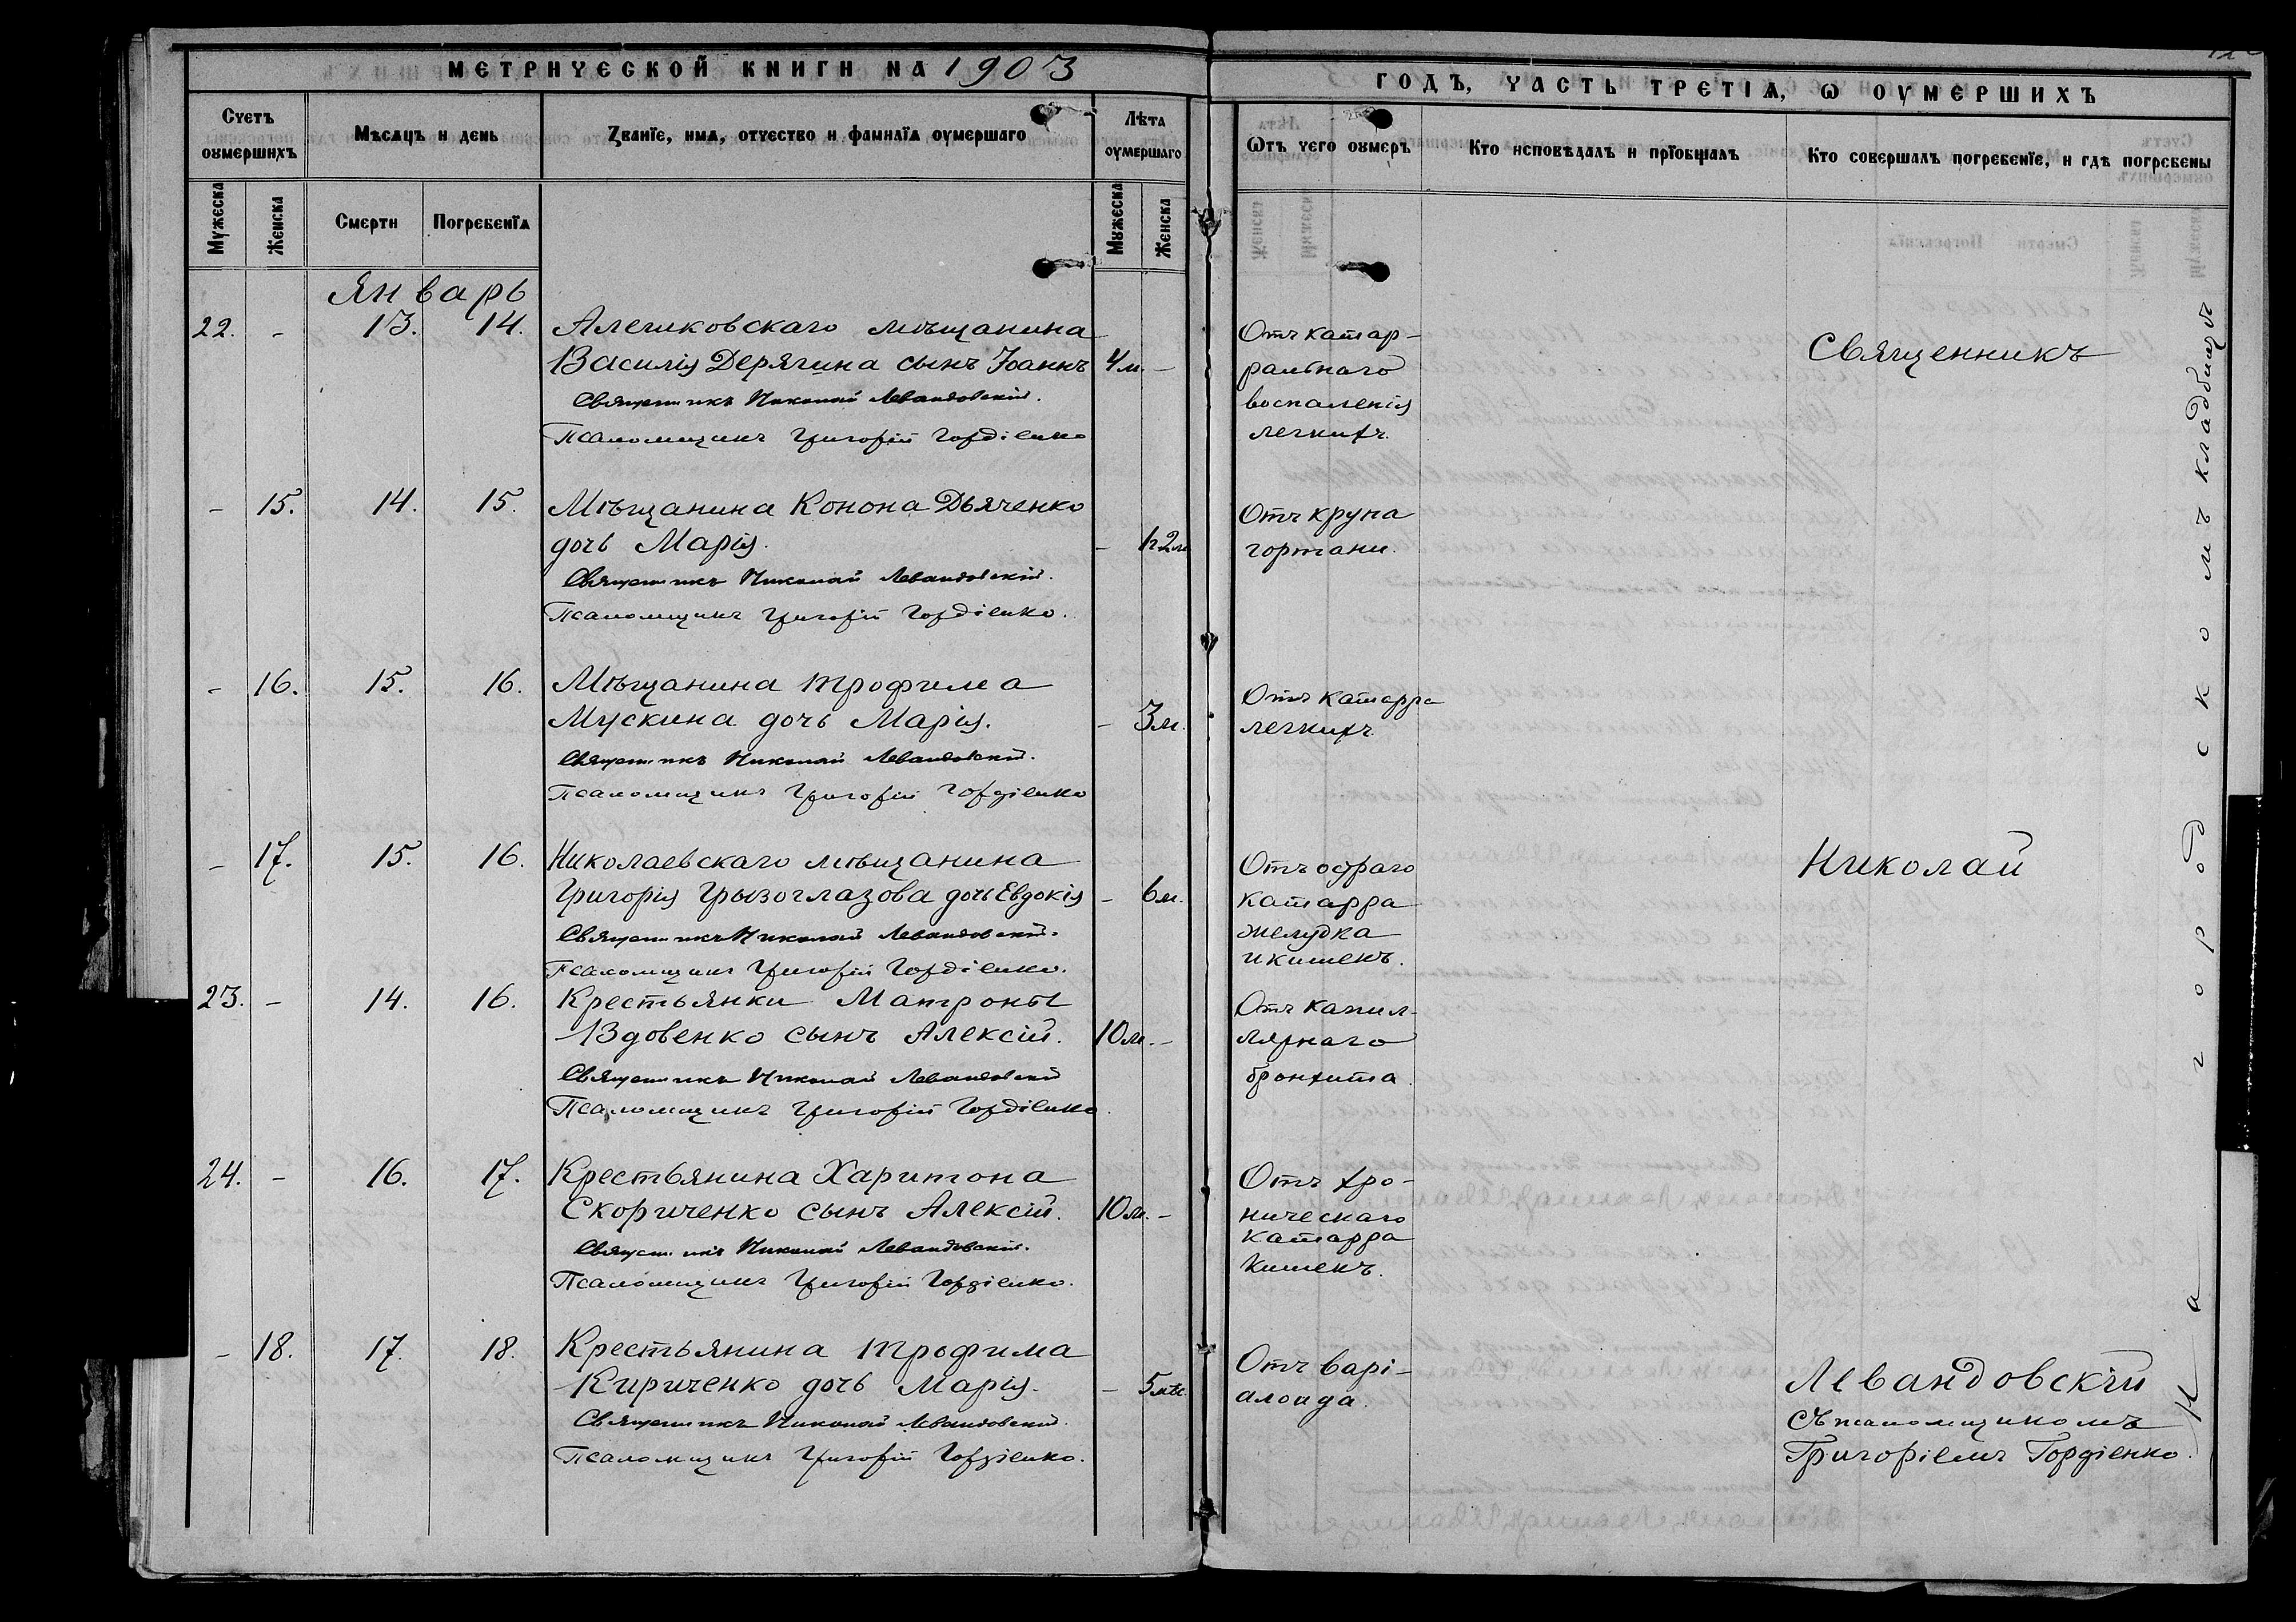 МЕТРИЧЕСКОЙ КНИГИ НА 1903
ГОДЪ, ЧАСТЬ ТРЕТІѦ, Ѡ ОУМЕРШИХЪ
Счетъ оумершихъ
Мѣсяцъ и день
Званїе, имѧ, отчество и фамилїѧ оумершаго
Лѣта оумершаго
Ѿтъ чего оумеръ
Кто исповѣдалъ и прїобщалъ
Кто совершалъ погребенїе, и гдѣ погребены
Мужеска
Женска
Смерти
Погребенїѧ
Мужеска
Женска
Январь
22. - 13. 14. Алешковскаго мѣщанина
Василія Дерягина сынъ Іоаннъ 4 м. -
Священникъ Николай Левандовскій.
Псаломщикъ Григорій Гордіенко
Отъ катар-
ральнаго
воспаленія
легкихъ.
Священникъ
- 15. 14. 15. Мѣщанина Конона Дьяченко
дочь Марія. -
Священникъ Николай Левандовскій.
Псаломщикъ Григорій Гордіенко.
Отъ крупа
гортани.
- 16. 15. 16. Мѣщанина Трофима
Мускина дочь Марія. - 3 м.
Священникъ Николай Левандовскій.
Псаломщикъ Григорій Гордіенко
Отъ катарра
легкихъ.
- 17. 15. 16. Николаевскаго мѣщанина
Григорія Грызоглазова дочь Евдокія - 6 м.
Священникъ Николай Левандовскій.
Псаломщикъ Григорій Гордіенко.
Отъ остраго
катарра
желудка
и кишекъ.
Николай
23. - 14. 16. Крестьянки Матроны
Вдовенко сынъ Алексій. 10 м. -
Священникъ Николай Левандовскій
Псаломщикъ Григорій Гордіенко.
Отъ капил-
лярнаго
бронхита.
24. - 16. 17. Крестьянина Харитона
Скориченко сынъ Алексій. 10 м. -
Священникъ Николай Левандовскій.
Псаломщикъ Григорій Гордіенко.
Отъ хро-
ническаго
катарра
кишекъ.
- 18. 17. 18. Крестьянина Трофима
Кириченко дочь Марія. - 5 мѣс.
Священникъ Николай Левандовскій.
Псаломщикъ Григорій Гордіенко.
Отъ варі-
алоида.
Левандовскій
съ псаломщикомъ
Григоріемъ Гордіенко.
На городскомъ кладбищѣ